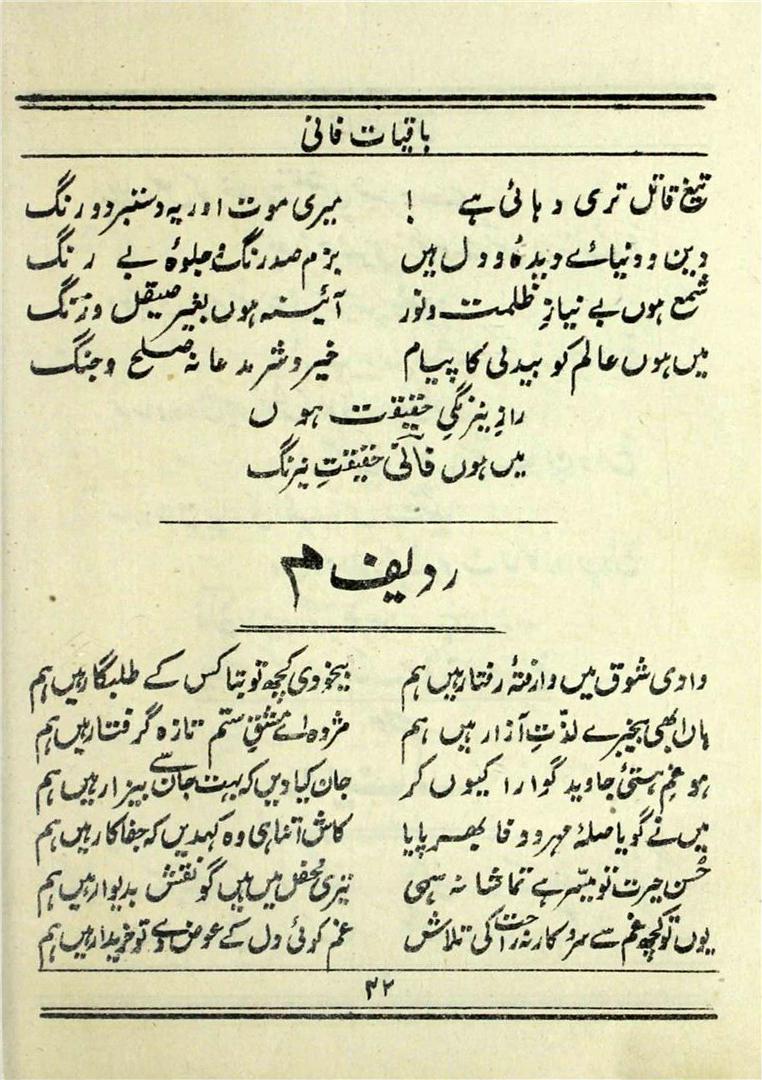 باقیات فانی
تیغ قاتل تری دہائی ہے ! میری موت اور یہ دستبرد و رنگ
دین و دنیائے دیدہ و دل ہیں بزم صد رنگ و جلوۂ بے رنگ
شمع ہوں بے نیازِ ظلمت و نور آئینہ ہوں بغیر صیقل و زنگ
میں ہوں عالم کو بیدلی کا پیام خیر و شر مدعا نہ صلح و جنگ
رازِ نیرنگیِ حقیقت ہوں
میں ہوں فانیؔ حقیقتِ نیرنگ
ردیف م
وادی شوق میں وارفتۂ رفتار ہیں ہم بیخودی کچھ تو بتا کس کے طلبگار ہیں ہم
ہاں ابھی بیخبرے لذّتِ آزار ہیں ہم مژدہ اے مشقِ ستم تازہ گرفتار ہیں ہم
ہو غمِ ہستیٔ جاوید گوارا کیوں کر جان کیا دیں کہ بہت جان سے بیزار ہیں ہم
میں نے گویا صلۂ مہر و وفا بھر پایا کاش اتنا ہی وہ کہدیں کہ جفاکار ہیں ہم
حُسن حیرت تو میسّر ہے تماشا نہ سہی تیری محفل میں ہیں گو نقش بدیوار ہیں ہم
یوں تو کچھ غم سے سروکار نہ راحت کی تلاش غم کوئی دل کے عوض دے تو خریدار ہیں ہم
۳۲